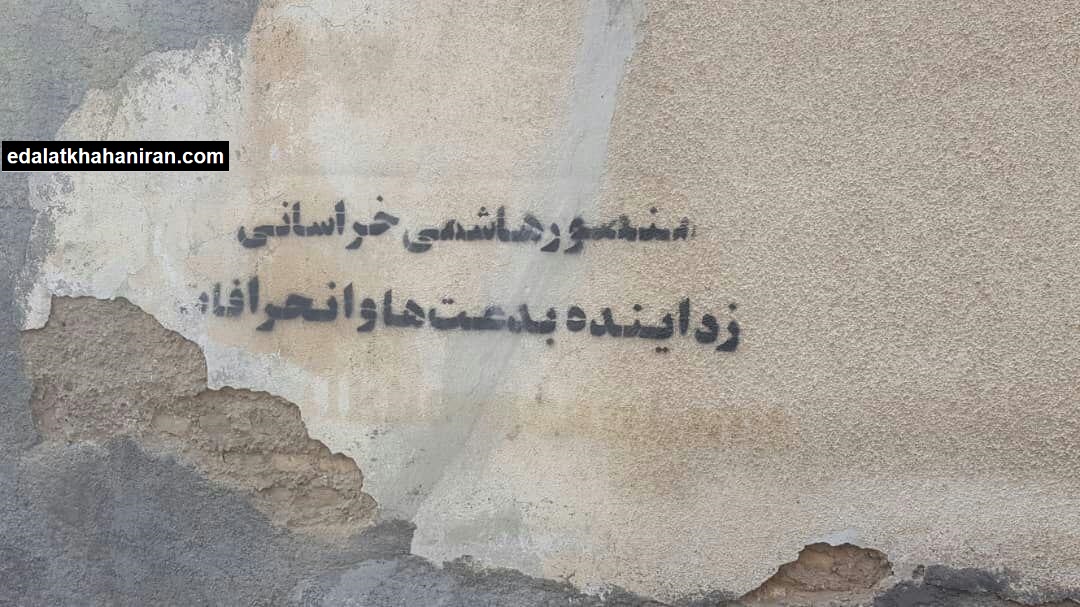 edalatkhahaniran.com
منصور هاشمی خراسانی
زداینده بدعت‌ها و انحرافات